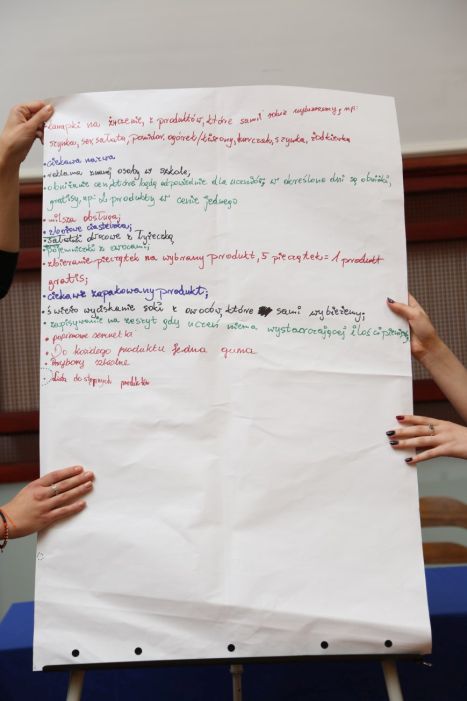 • kanapki na życzenie, z produktów, które sami sobie wybierzemy, np:
szynka, ser, sałata, pomidor, ogórek/kiszony, kurczak, szynka, żółtierka
• ciekawa nazwa
• reklama znanej osoby w szkole;
• obniżanie cen, które będą odpowiednie dla uczniów, w określone dni są obniżki,
gratisy, np: 2 produkty w cenie jednego
• milsza obsługa;
• zbożowe ciasteczka;
• sałatki owocowe z łyżeczką
• pojemniczki z owocami
• zbieranie pieczątek na wybrany produkt, 5 pieczątek = 1 produkt
gratis;
• ciekawie zapakowany produkt;
• świeżo wyciskanie soki z owoców, które sami wybierzemy;
• zapisywanie na zeszyt gdy uczeń niema wystarczającej ilości pieniędzy
• papierowe serwetki
• Do każdego produktu jedna guma
• Przybory szkolne
• Lista dostępnych produktów